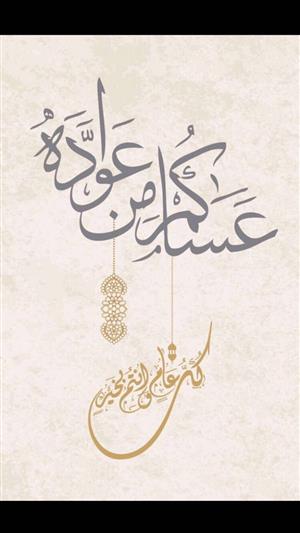 عَسَاكُم مِن عَوَّادَهُ
كُلُّ عَامٍ وَأَنْتُمْ بِخَيْرٍ